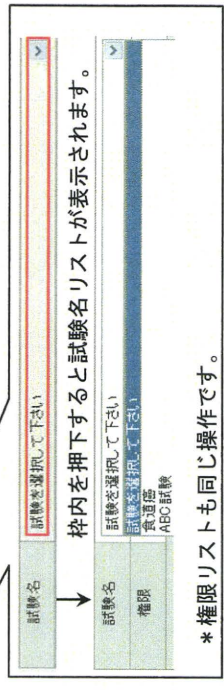 試験名 試験を選択して下さい
枠内を押下すると試験名リストが表示されます。
試験名 試験を選択して下さい
権限 試験を選択して下さい
食道癌
ABC試験
*権限リストも同じ操作です。